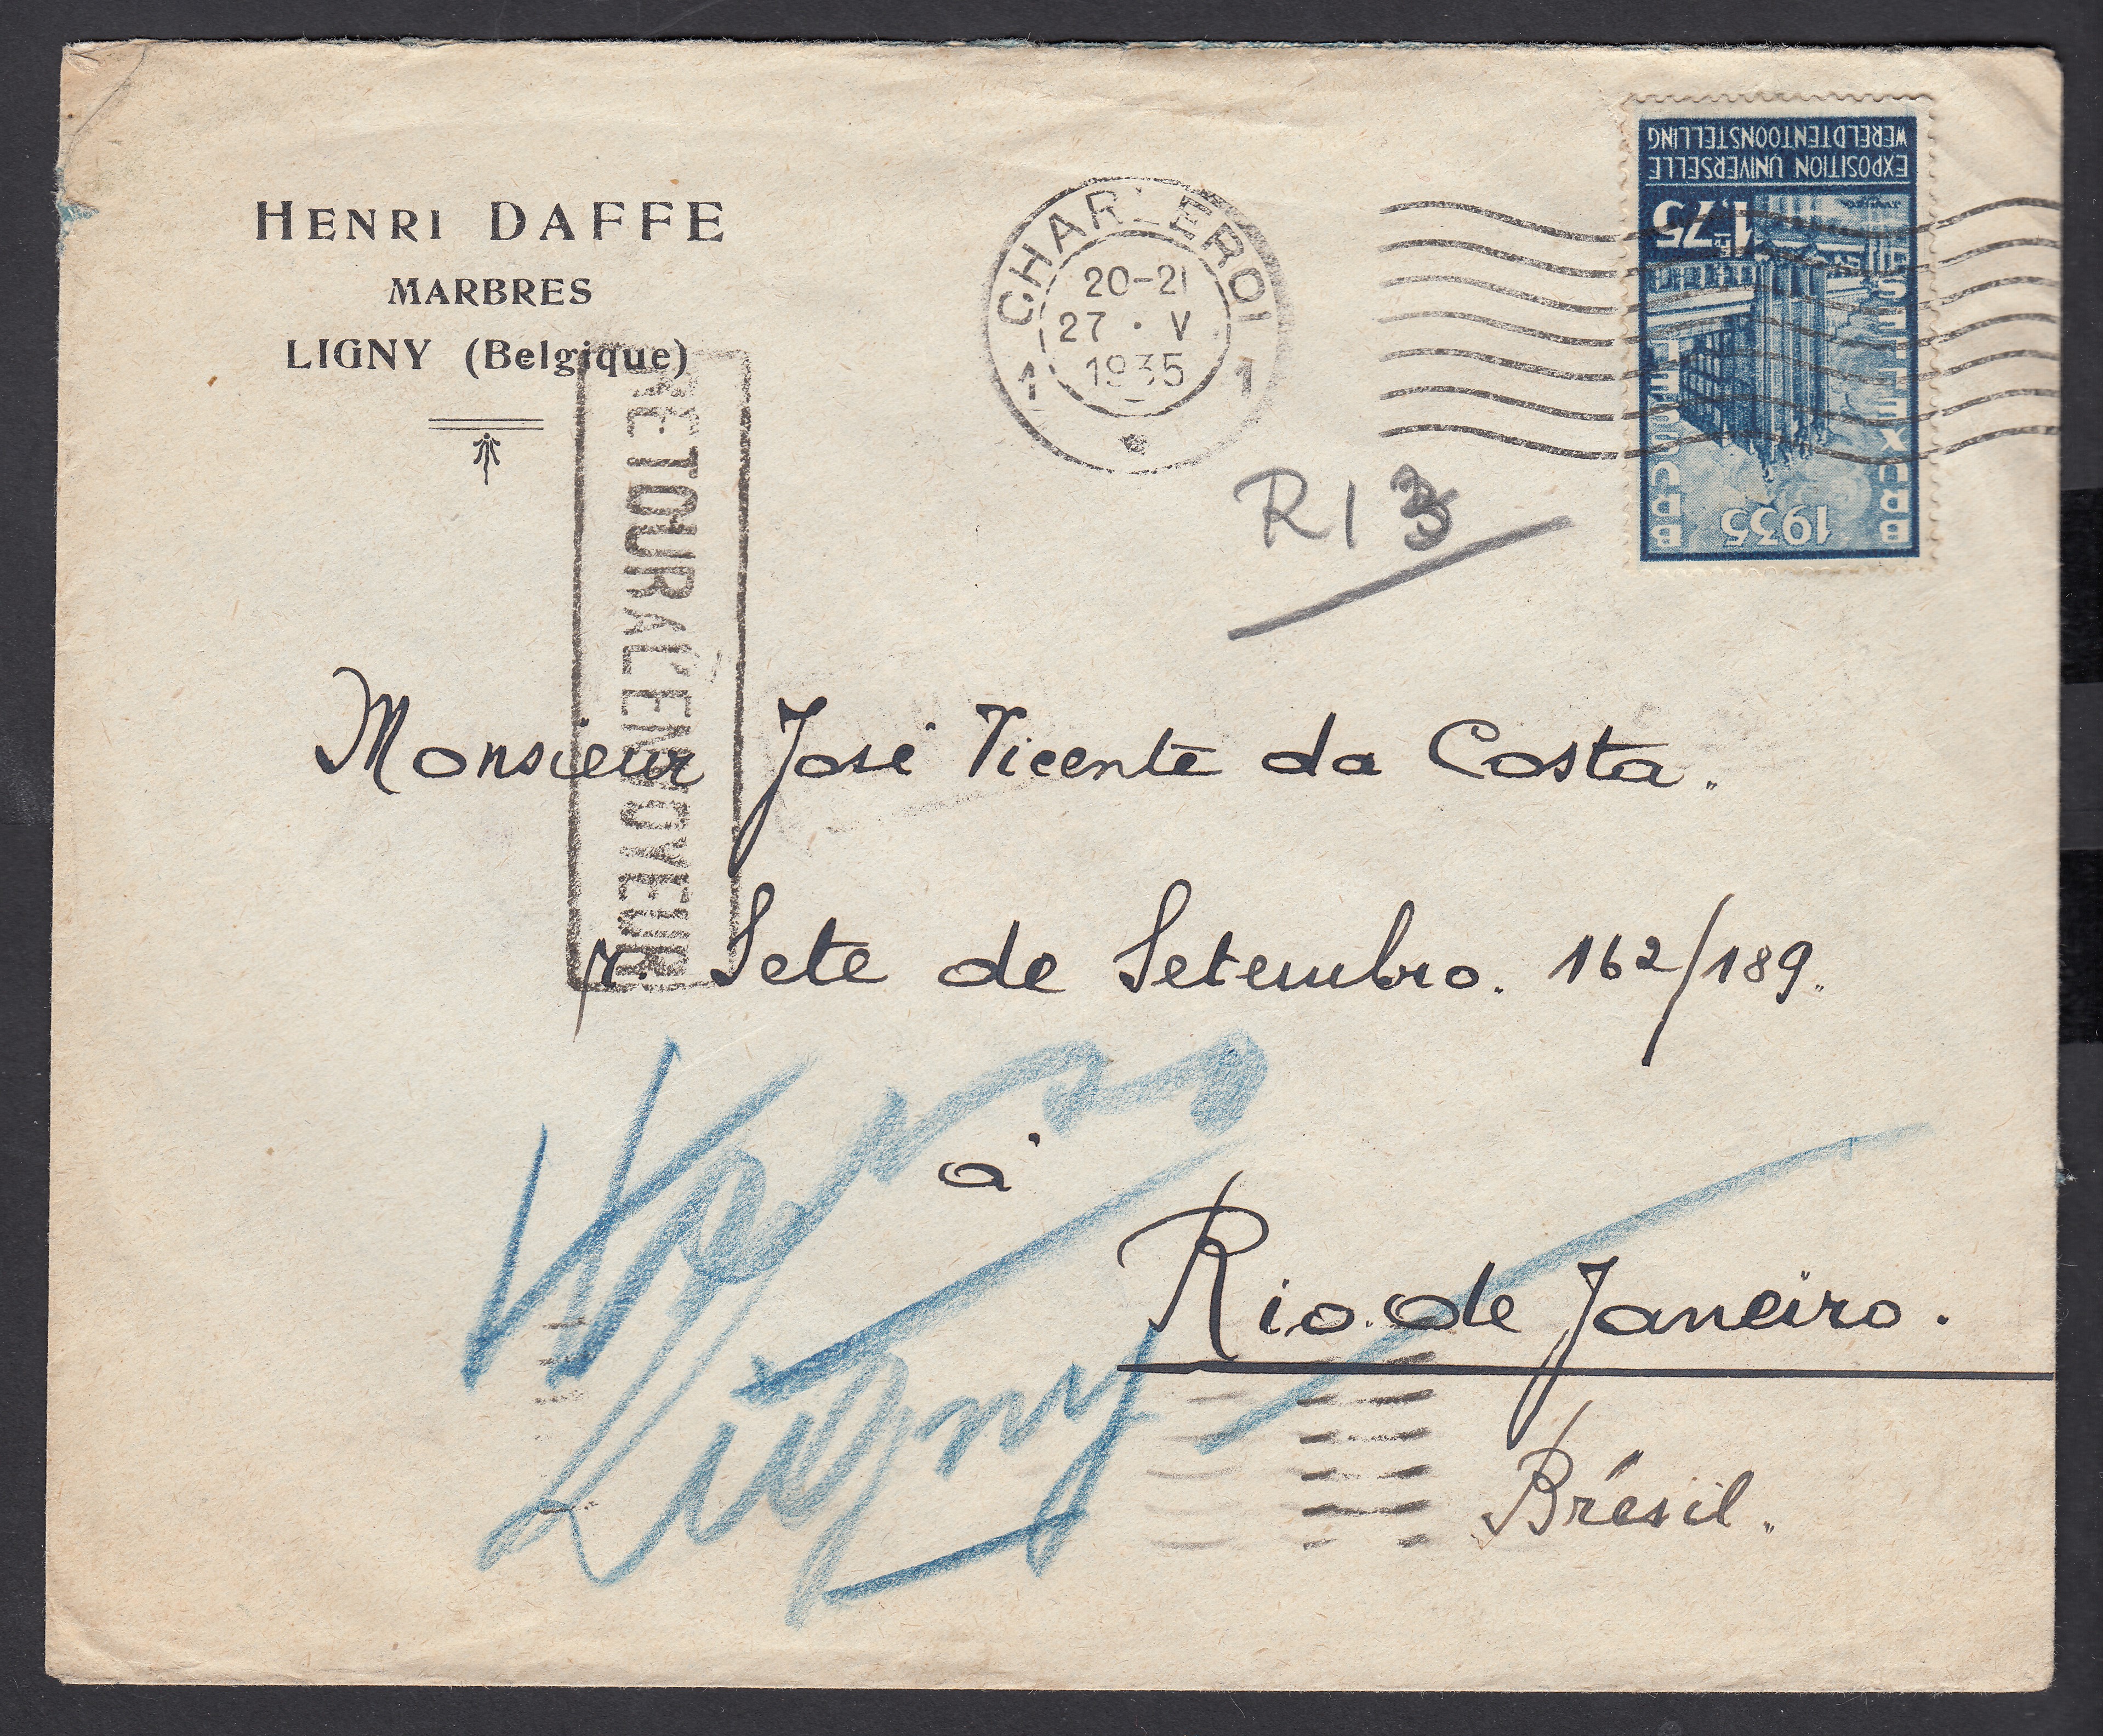 HENRI DAFFE
MARBRES
LIGNY (Belgique)
CHARLEROI
20-21
27 · V
1935
1 1
WERELDTENTOONSTELLING
EXPOSITION UNIVERSELLE
1F75
BRUSSEL
BRUXELLES
1935
R13
RETOUR A L'ENVOYEUR
Monsieur José Vicente da Costa.
r. Sete de Setembro. 162/189.
à
Rio de Janeiro.
Brésil.
Ligny